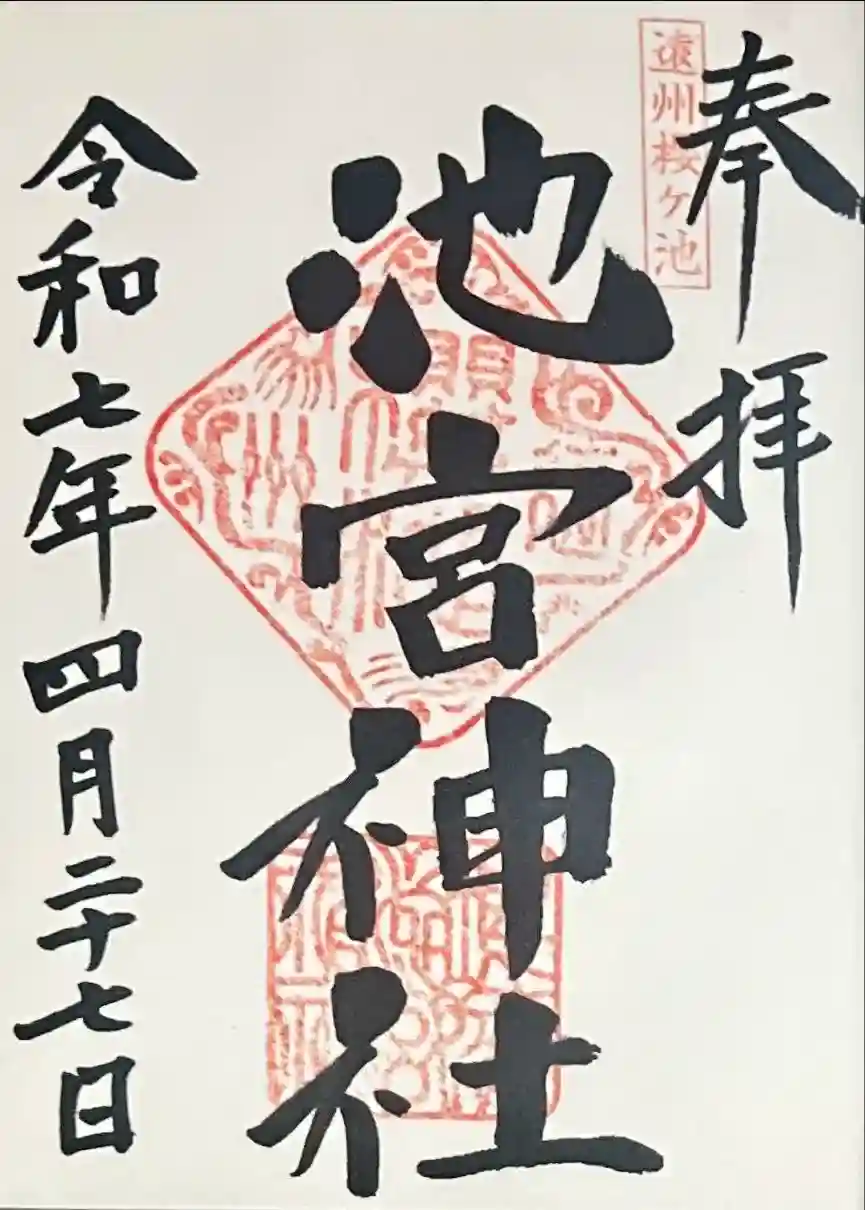 奉拝
遠州桜ヶ池
池宮神社
令和七年四月二十七日